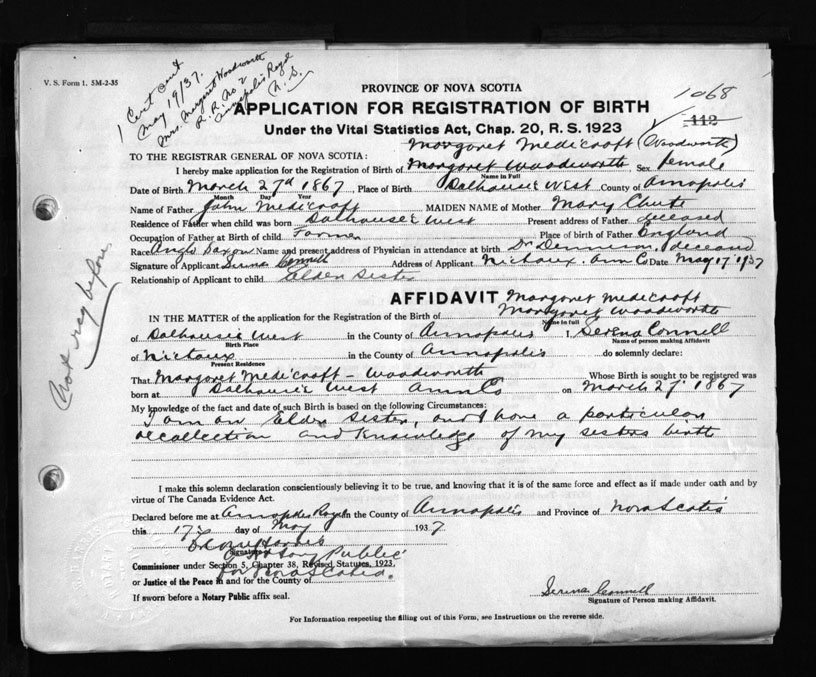 V. S. Form 1. 5M-2-35
1 Cert sent
May 19/37.
Mrs. Margaret Woodworth
R. R. No 2
Annapolis Royal
N. S.
1068
112
PROVINCE OF NOVA SCOTIA
APPLICATION FOR REGISTRATION OF BIRTH
Under the Vital Statistics Act, Chap. 20, R. S. 1923
Margaret Medicraft (Woodworth)
TO THE REGISTRAR GENERAL OF NOVA SCOTIA:
I hereby make application for the Registration of Birth of Margaret Woodworth Sex female
Name in Full
Date of Birth March 27th 1867 Place of Birth Dalhousie West County of Annapolis
Month Day Year
Name of Father John Medicraft MAIDEN NAME of Mother Mary Chute
Residence of Father when child was born Dalhousie West Present address of Father deceased
Occupation of Father at Birth of child Farmer Place of birth of Father England
Race Anglo Saxon Name and present address of Physician in attendance at birth Dr Dennison, deceased
Signature of Applicant Serena Connell Address of Applicant Nictaux. Ann Co Date May 17 1937
Relationship of Applicant to child Elder Sister
Not reg before
AFFIDAVIT Margaret Medicraft
IN THE MATTER of the application for the Registration of the Birth of Margaret Woodworth
Name in full
of Dalhousie West in the County of Annapolis I, Serena Connell
Birth Place Name of person making Affidavit
of Nictaux in the County of Annapolis do solemnly declare:
Present Residence
That Margaret Medicraft - Woodworth Whose Birth is sought to be registered was
born at Dalhousie West Ann Co on March 27 1867
My knowledge of the fact and date of such Birth is based on the following Circumstances:
I am an Elder Sister, and have a particular
recollection and knowledge of my sisters birth
I make this solemn declaration conscientiously believing it to be true, and knowing that it is of the same force and effect as if made under oath and by
virtue of The Canada Evidence Act.
Declared before me at Annapolis Royal in the County of Annapolis and Province of Nova Scotia
this 17th day of May 1937
Signature
A Notary Public
Commissioner under Section 5, Chapter 38, Revised Statutes, 1923.
for Nova Scotia.
or Justice of the Peace in and for the County of
If sworn before a Notary Public affix seal.
Serena Connell
Signature of Person making Affidavit.
For Information respecting the filling out of this Form, see Instructions on the reverse side.